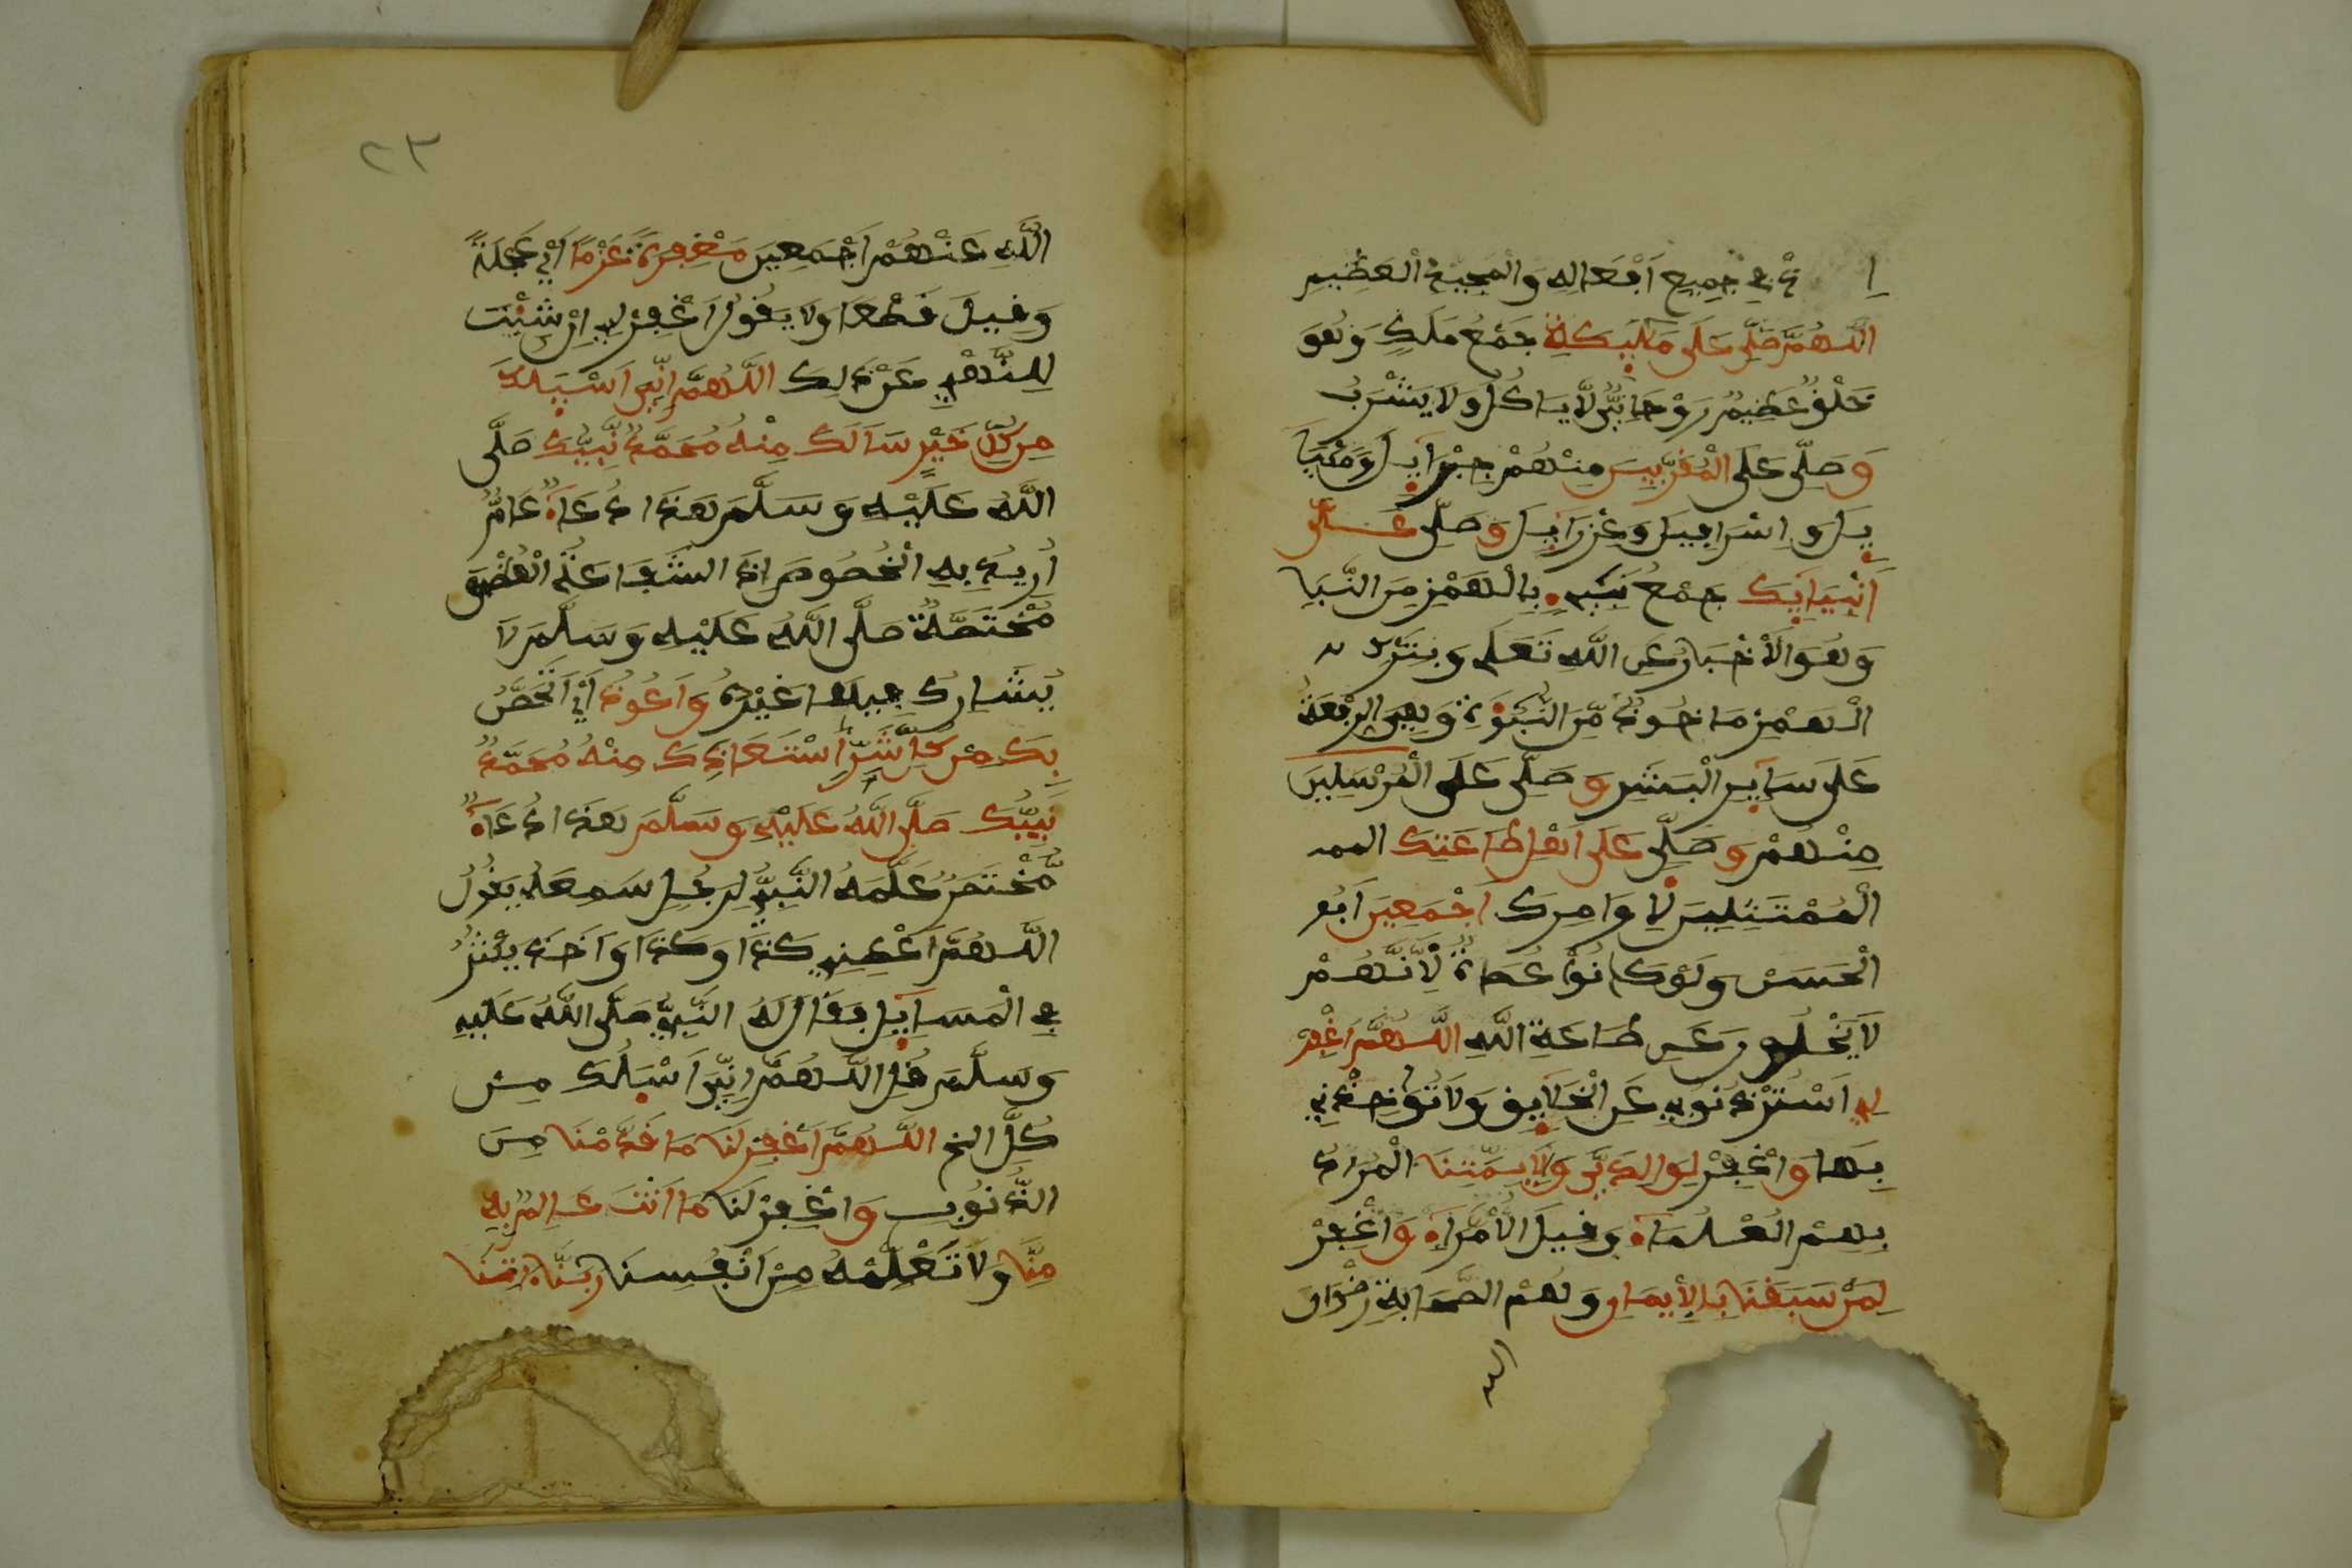 في جميع اَفْعَالِهِ وَالْمَجِيدُ الْعَظِيمِ
اللَّهُمَّ صَلِّ عَلَى مَلَٰٓئِكَتِكَ جَمْعُ مَلَكٍ وَهُوَ
خَلْقٌ عَظِيمٌ رَوْحَانِيٌّ لَّا يَاكُلُ وَلَا يَشْرَبُ
وَصَلِّ عَلَى الْمُقَرَّبِينَ مِنْهُمْ جِبْرَآئِيلَ وَمِيْكَآ
ئِيلَ وَإِسْرَافِيلَ وَعِزْرَآئِيلَ وَصَلِّ عَلَىٰ
أَنْبِيَآئِكَ جَمْعُ نَبِيءٍ بِالْهَمْزِ مِنَ النَّبَإِ
وَهُوَ الْأَخْبَارُ عَنِ اللَّهِ تَعَلَى وَبِتَرْكِ
الْهَمْزِ مَاخُوذٌ مِّنَ النُّبُوَّةِ وَهِيَ الرِّفْعَةُ
عَلَى سَآئِرِ الْبَشَرِ وَصَلِّ عَلَى الْمُرْسَلِينَ
مِنْهُمْ وَصَلِّ عَلَى أَهْلِ طَاعَتِكَ
الْمُمْتَثِلِينَ لِأَوَامِرِكَ أَجْمَعِينَ اَبُو
الْحَسَنْ وَلَوْ كَانُوْا عُصَاةً لِأَنَّهُمْ
لَا يَخْلُونَ عَن طَاعَةِ اللَّهِ اللَّهُمَّ اغْفِرْ
لِي اَسْتُرْ ذُنُوبِي عَنِ الْخَلَآئِقِ وَلَا تُؤَاخِذْنِي
بِهَا وَاغْفِرْ لِوَالِدَيَّ وَلِأَيِمَّتِنَا الْمُرَادُ
بِهِمُ الْعُلَمَآءُ وَقِيلَ الْأُمَرَآءُ وَاغْفِرْ
لِمَنْ سَبَقَنَا بِالْإِيمَانِ وَهُمُ الصَّحَابَةُ رِضْوَانُ
الله
٢٣
اللَّهِ عَنْهُمْ أَجْمَعِينَ مَغْفِرَةً عَزْمًا أَيْ عَجَلَةً
وَقِيلَ قَطْعًا وَلَا يَقُولُ اَغْفِرْ لِي إِنْ شِئْتَ
لِلنَّهْيِ عَنْ ذَلِكَ اللَّهُمَّ إِنِّي أَسْئَلُكَ
مِن كُلِّ خَيْرٍ سَأَلَكَ مِنْهُ مُحَمَّدٌ نَّبِيُّكَ صَلَّى
اللَّهُ عَلَيْهِ وَسَلَّمَ هَذَا دُعَآءٌ عَامٌّ
أُرِيدَ بِهِ الْخُصُوصُ إِذِ الشَّفَاعَةُ الْعُظْمَى
مُخْتَصَّةٌ صَلَّى اللَّهُ عَلَيْهِ وَسَلَّمَ لَا
يُشَارِكُ فِيهَا غَيْرُهُ وَأَعُوذُ أَيْ أَتَحَصَّنُ
بِكَ مِنْ كُلِّ شَرٍّ اسْتَعَاذَكَ مِنْهُ مُحَمَّدٌ
نَبِيُّكَ صَلَّى اللَّهُ عَلَيْهِ وَسَلَّمَ هَذَا دُعَآءٌ
مُّخْتَصَرٌ عَلَّمَهُ النَّبِيُّ لِرَجُلٍ سَمِعَهُ يَقُولُ
اللَّهُمَّ أَعْطِنِي كَذَا وَكَذَا وَأَخَذَ يُكْثِرُ
فِي الْمَسَآئِلِ فَقَالَ لَهُ النَّبِيُّ صَلَّى اللَّهُ عَلَيْهِ
وَسَلَّمَ قُلِ اللَّهُمَّ إِنِّي أَسْئَلُكَ مِن
كُلِّ الخ اللَّهُمَّ اغْفِرْ لَنَا مَا قَدَّمْنَا مِنَ
الذُّنُوبِ وَاغْفِرْ لَنَا مَا أَنْتَ عَالِمٌ بِهِ
مِنَّا وَلَا نَعْلَمُهُ مِنْ أَنْفُسِنَا رَبَّنَا ءَاتِنَا